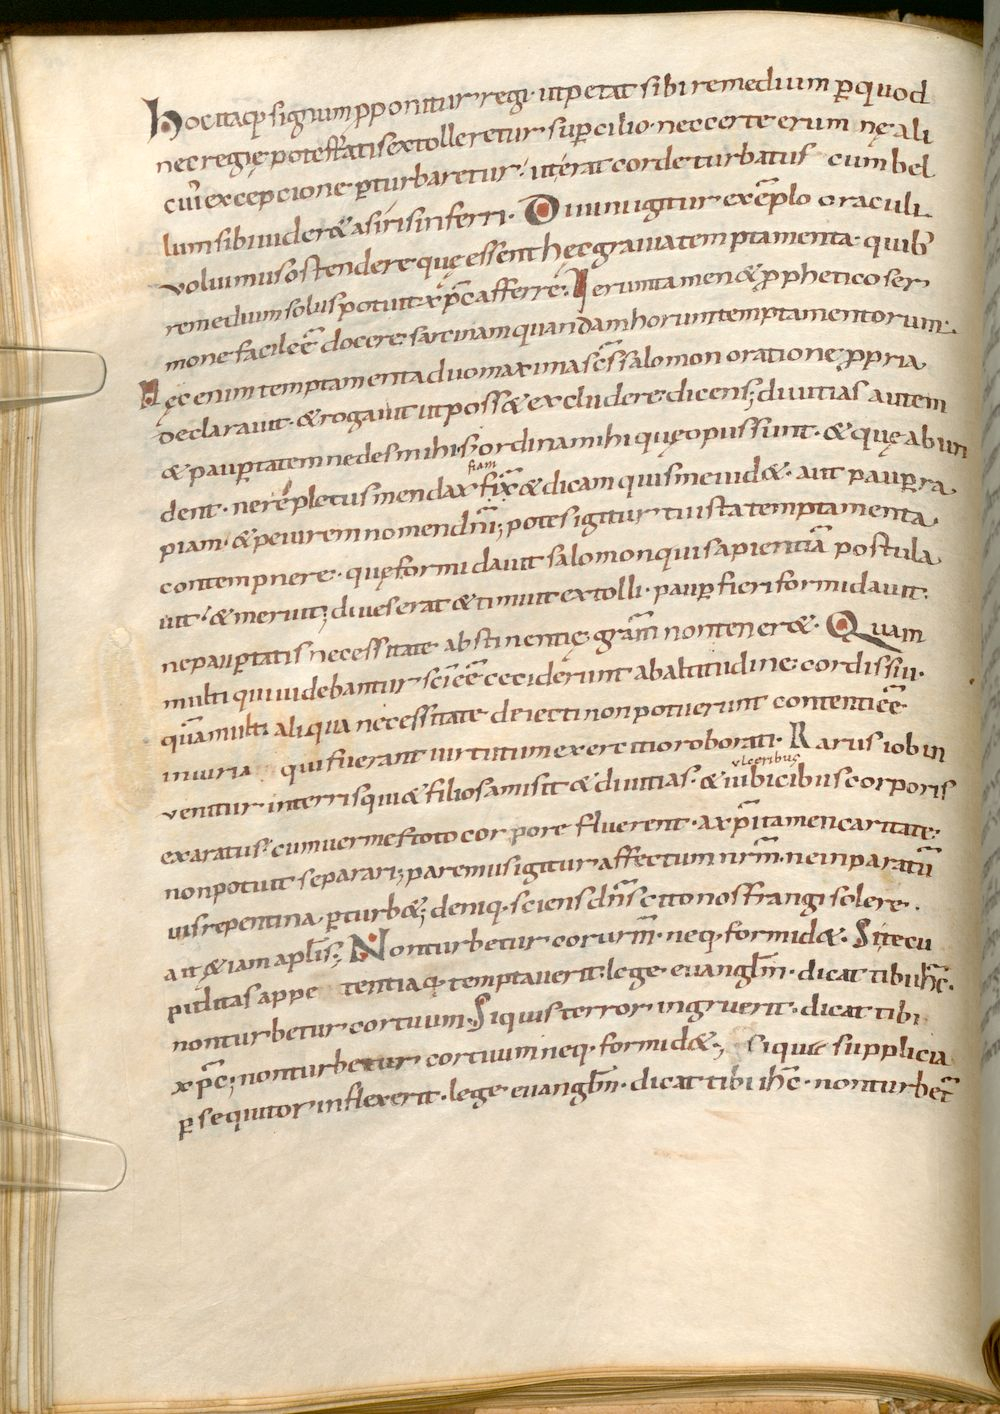 hocitaq; signum pponitur regi· ut petat sibi remedium ꝑ quod
nec regię potestatis extolleretur suꝑcilio· nec certe erum nę ali
cui excepcione ꝑturbaretur· ut erat corde turbatus cum bel
lum sibi uider& asiris inferri· Diuini igitur exēplo oraculi
voluimus ostendere quę essent hęc grauia temptamenta· quib;
remedium solus potuit xp̄c afferre· Ierum tamen & ꝓphetico ser
mone facile ē docere· sarcinam quandam horum temptamentorum·
Hęc enim temptamenta duo maxima sc̄s salomon oratione ꝓpria
declarauit· & rogauit ut poss& excludere· dicens; diuitias autem
& pauꝑtatem ne des mihi· s; ordina mihi quę opus sunt· & quę abun
fiam
dent· ne repletus mendax fix̄ & dicam quis me uid&· aut pauꝑ ra
piam· & peiurem nomen dn̄i; potes igitur tu ista temptamenta
contempnere· quę formidauit salomon qui sapientiā postula
uit· & meruit; diues erat & timuit extolli· pauꝑ fieri formidauit·
ne pauꝑtatis necessitate abstinentię grām non tener&· Quam
multi qui uidebantur sc̄i cē ceciderunt ab altitudine· cordis sui·
quā multi aliqua necessitate deiecti non potuerunt contenti cē
iniuria qui fuerant uirtutum exercitio roborati· Rarus iob in
vlceribus
venitur in terris qui & filios amisit & diuitias· & uibicibus corporis
exaratus· cum uermes toto corpore fluerent· a xp̄i tamen caritate·
non potuit separari; paremus igitur affectum nr̄m· ne inparatū
uis repentina ꝑturb&; deniq· sciens dn̄s cito nos frangi solere·
ait &iam aplīs; Non turbetur cor ur̄m· neq· formid&· Si te cu
piditas appetentiaq· temptauerit· lege· euangl̄m· dicat tibi ih̄c·
non turbetur cor tuum· Si quis terror ingruerit· dicat tibi
xp̄c; non turbetur cor tuum neq· formid&; si quis supplicia
ꝑsequutor inflexerit· lege· euangl̄m· dicat tibi ih̄c· non turbet̄